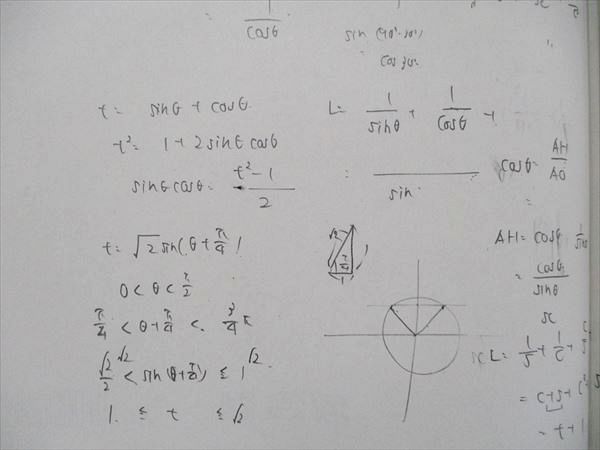 = 1/cosθ
sin(90°-30°)
= cos30°
t = sinθ + cosθ
t² = 1 + 2sinθcosθ
sinθcosθ = t²-1/2
t = √2 sin(θ+π/4)
0 < θ < π/2
π/4 < θ+π/4 < 3/4 π
√2/2 √2 < sin(θ+π/4) ≤ 1 √2
1 ≤ t ≤ √2
L = 1/sinθ + 1/cosθ +
sin
√2 π/4 1 1
cosθ = AH/AO
=
AH = cosθ 1/sinθ
= cosθ/sinθ
sc
sc L = 1/s + 1/c +
= c+s+c²
= t+1